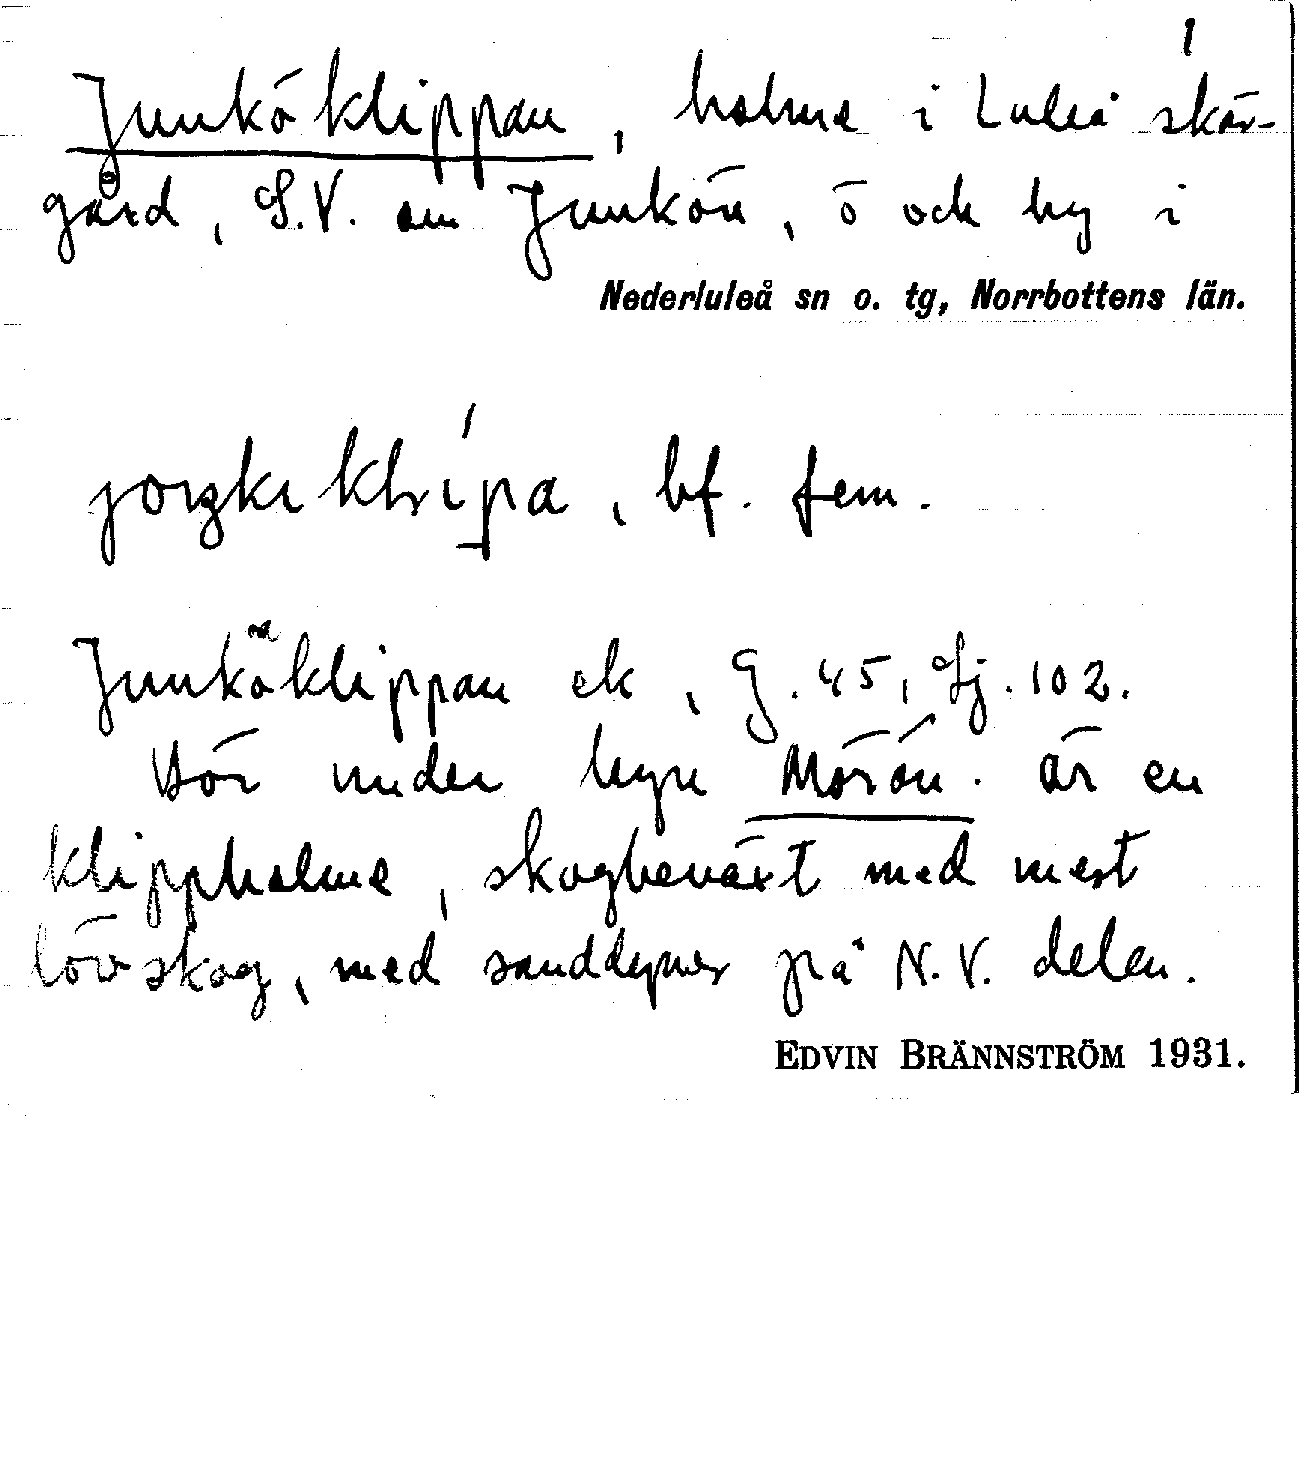 Junköklippan, holme i Luleå skär-
gård, S.V. om Junkön, ö och by i
Nederluleå sn o. tg, Norrbottens län.
bf. fem.
Junköklippan ek, G. 45, Sj. 102.
Bör under byn Mörön. är en
klippholme, skogbeväxt med mest
lövskog, med sanddyner på N.V. delen.
EDVIN BRÄNNSTRÖM 1931.